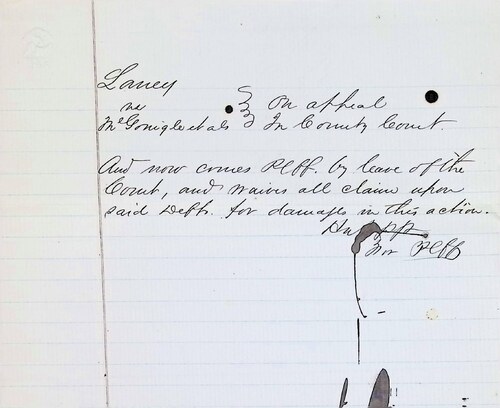 Laney
vs } On appeal
McGonigle et als } In County Court.
And now comes Plff. by leave of the
Court, and waives all claim upon
said Defts. for damages in this action.
For Plff